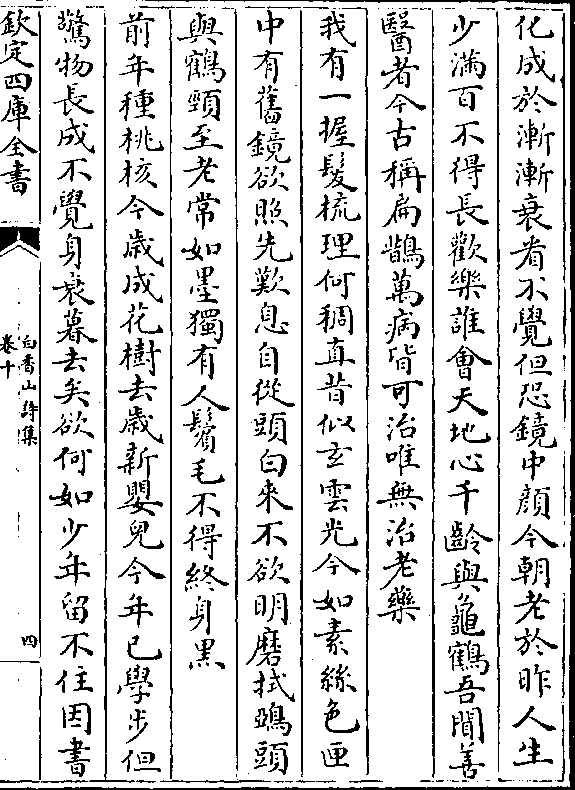 化成於漸漸衰看不覺但恐鏡中顔今朝老於昨人生
少滿百不得長歡樂誰會天地心千齡與龜鶴吾聞善
醫者今古稱扁鵲萬病皆可治唯無治老藥
我有一握髮梳理何稠直昔似玄雲光今如素絲色匣
中有舊鏡欲照先歎息自從頭白來不欲明磨拭鵶頭
與鶴頸至老常如墨獨有人鬢毛不得終身黑
前年種桃核今歲成花樹去歲新嬰兒今年已學步但
驚物長成不覺身衰暮去矣欲何如少年留不住因書
欽定四庫全書
白香山詩集
卷十
四